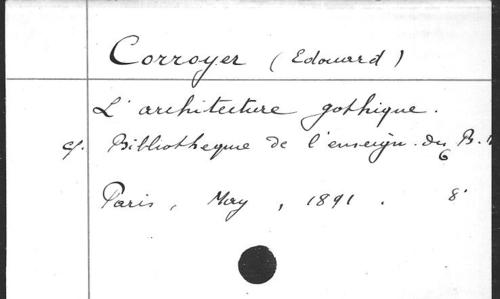 Corroyer (Edouard)
L'architecture gothique.
cf. Bibliotheque de l'enseign. du B.
Paris, May, 1891. 8°